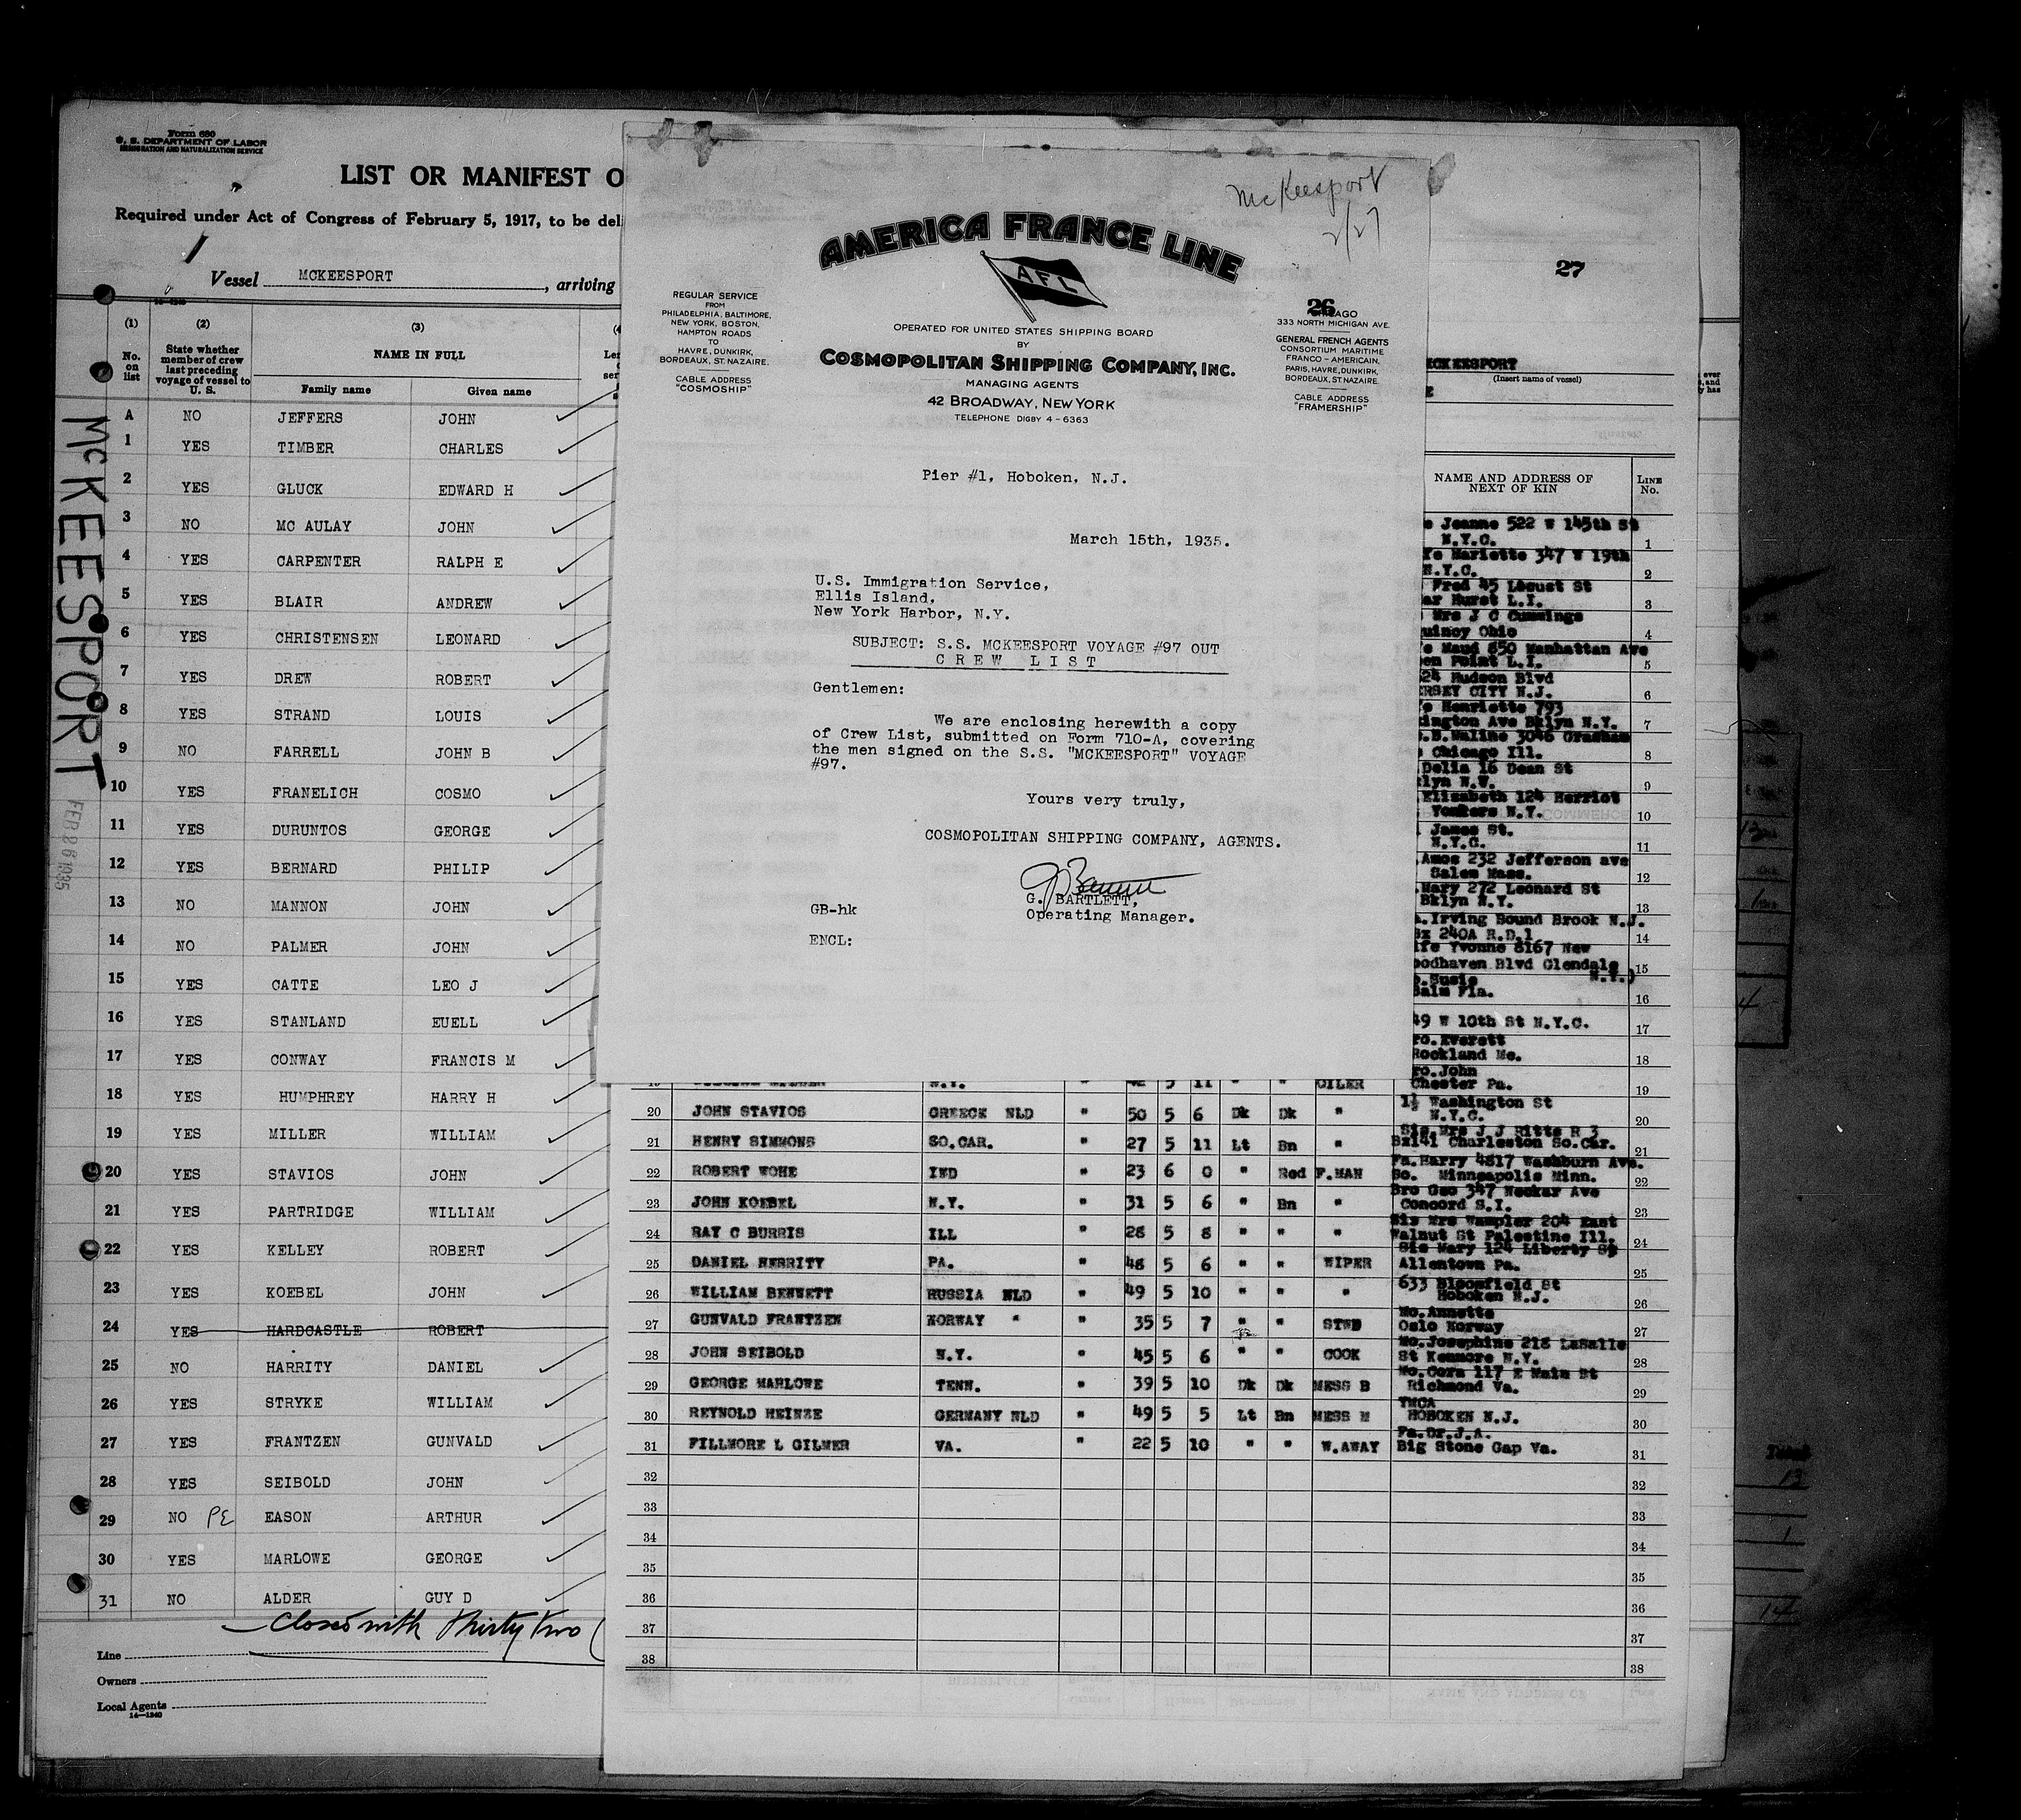 Form 680
U. S. DEPARTMENT OF LABOR
IMMIGRATION AND NATURALIZATION SERVICE
LIST OR MANIFEST O
Required under Act of Congress of February 5, 1917, to be deli
Vessel MCKEESPORT, arriving
(1) (2) (3)
No. on list
State whether member of crew last preceding voyage of vessel to U. S.
NAME IN FULL
Family name Given name
A NO JEFFERS JOHN
1 YES TIMBER CHARLES
2 YES GLUCK EDWARD H
3 NO MC AULAY JOHN
4 YES CARPENTER RALPH E
5 YES BLAIR ANDREW
6 YES CHRISTENSEN LEONARD
7 YES DREW ROBERT
8 YES STRAND LOUIS
9 NO FARRELL JOHN B
10 YES FRANELICH COSMO
11 YES DURUNTOS GEORGE
12 YES BERNARD PHILIP
13 NO MANNON JOHN
14 NO PALMER JOHN
15 YES CATTE LEO J
16 YES STANLAND EUELL
17 YES CONWAY FRANCIS M
18 YES HUMPHREY HARRY H
19 YES MILLER WILLIAM
20 YES STAVIOS JOHN
21 YES PARTRIDGE WILLIAM
22 YES KELLEY ROBERT
23 YES KOEBEL JOHN
24 YES HARDCASTLE ROBERT
25 NO HARRITY DANIEL
26 YES STRYKE WILLIAM
27 YES FRANTZEN GUNVALD
28 YES SEIBOLD JOHN
29 NO PE EASON ARTHUR
30 YES MARLOWE GEORGE
31 NO ALDER GUY D
Closed with Thirty Two (
Line
Owners
Local Agents
14—1240
McKEESPORT
FEB 26 1935
McKeesport
2/27
AMERICA FRANCE LINE
AFL
REGULAR SERVICE
FROM
PHILADELPHIA, BALTIMORE,
NEW YORK, BOSTON,
HAMPTON ROADS
TO
HAVRE, DUNKIRK,
BORDEAUX, ST. NAZAIRE.
CABLE ADDRESS
"COSMOSHIP"
OPERATED FOR UNITED STATES SHIPPING BOARD
BY
COSMOPOLITAN SHIPPING COMPANY, INC.
MANAGING AGENTS
42 BROADWAY, NEW YORK
TELEPHONE DIGBY 4-6363
26
CHICAGO
333 NORTH MICHIGAN AVE.
GENERAL FRENCH AGENTS
CONSORTIUM MARITIME
FRANCO-AMERICAIN,
PARIS, HAVRE, DUNKIRK,
BORDEAUX, ST. NAZAIRE.
CABLE ADDRESS
"FRAMERSHIP"
Pier #1, Hoboken, N.J.
March 15th, 1935.
U.S. Immigration Service,
Ellis Island,
New York Harbor, N.Y.
SUBJECT: S.S. MCKEESPORT VOYAGE #97 OUT
C R E W L I S T
Gentlemen:
We are enclosing herewith a copy
of Crew List, submitted on Form 710-A, covering
the men signed on the S.S. "MCKEESPORT" VOYAGE
#97.
Yours very truly,
COSMOPOLITAN SHIPPING COMPANY, AGENTS.
G. BARTLETT,
Operating Manager.
GB-hk
ENCL:
27
MCKEESPORT
(Insert name of vessel)
NAME AND ADDRESS OF NEXT OF KIN
LINE No.
Jeanne 522 W 145th St
N.Y.C. 1
Mariette 347 W 19th
N.Y.C. 2
Fred 45 Locust St
Hurst L.I. 3
Mrs J C Cummings
Quincy Ohio 4
Maud 850 Manhattan Ave
en Point L.I. 5
24 Hudson Blvd
ERSEY CITY N.J. 6
Henriette 793
ington Ave Bklyn N.Y. 7
Chicago Ill. 8
Delia 16 Dean St
9
Elizabeth 124 Herriot
Yonkers N.Y. 10
James St.
N.Y.C. 11
Amos 232 Jefferson ave
Salem Mass. 12
Mary 272 Leonard St
Bklyn N.Y. 13
Irving Bound Brook N.J.
Bx 240A R.D.1 14
ife Yvonne 8167 New
oodhaven Blvd Glendale
N.Y.) 15
Susie
Fla. 16
49 W 10th St N.Y.C. 17
ro. Everett
Rockland Me. 18
ro. John
Chester Pa. 19
19 N.Y. 42 5 11 " " OILER
20 JOHN STAVIOS GREECE NLD " 50 5 6 Dk Dk " 1½ Washington St
N.Y.C. 20
21 HENRY SIMMONS SO.CAR. " 27 5 11 Lt Bn " Sis. Mrs J J Ritts R 3
Bx141 Charleston So.Car. 21
22 ROBERT WOHE IND " 23 6 0 " Red F.MAN Fa. Harry 4817 Washburn Ave.
So. Minneapolis Minn. 22
23 JOHN KOEBEL N.Y. " 31 5 6 " Bn " Bro Geo 347 Neckar Ave
Concord S.I. 23
24 RAY C BURRIS ILL " 28 5 8 " " " Sis Mrs Wampler 204 East
Walnut St Palestine Ill. 24
25 DANIEL HERRITY PA. " 48 5 6 " " WIPER Sis Mary 124 Liberty St
Allentown Pa. 25
26 WILLIAM BENNETT RUSSIA NLD " 49 5 10 " " " 633 Bloomfield St
Hoboken N.J. 26
27 GUNVALD FRANTZEN NORWAY " " 35 5 7 " " STWD Mo. Annette
Oslo Norway 27
28 JOHN SEIBOLD N.Y. " 45 5 6 " " COOK Mo. Josephine 218 LaSalle
St Kenmore N.Y. 28
29 GEORGE MARLOWE TENN. " 39 5 10 Dk Dk MESS B Mo. Cora 117 E Main St
Richmond Va. 29
30 REYNOLD HEINZE GERMANY NLD " 49 5 5 Lt Bn MESS M YMCA
HOBOKEN N.J. 30
31 FILLMORE L GILMER VA. " 22 5 10 " " W.AWAY Fa. Dr. J.A.
Big Stone Gap Va. 31
32 32
33 33
34 34
35 35
36 36
37 37
38 38
Total
13
1
14